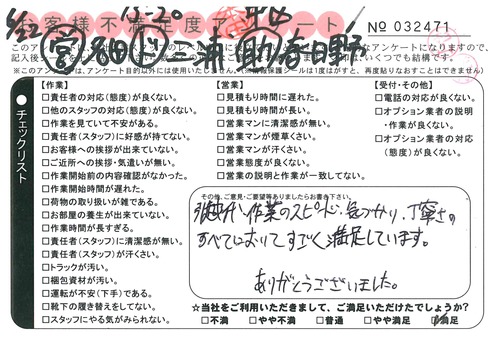 お客様不満足度アンケート
13-20
6/22
No 032471
営
三浦
副
日野
記入後
いつでも結構です。
(※このアンケートは、アンケート目的以外には使用いたしません。
保護シールは1度はがすと、再度貼りなおすことはできません)
チェックリスト
【作業】
□責任者の対応(態度)が良くない。
□他のスタッフの対応(態度)が良くない。
□作業を見ていて不安がある。
□責任者(スタッフ)に好感が持てない。
□お客様への挨拶が出来ていない。
□ご近所への挨拶・気遣いが無い。
□作業開始前の内容確認がなかった。
□作業開始時間が遅れた。
□荷物の取り扱いが雑である。
□お部屋の養生が出来ていない。
□作業時間が長すぎる。
□責任者(スタッフ)に清潔感が無い。
□責任者(スタッフ)が汗くさい。
□トラックが汚い。
□梱包資材が汚い。
□運転が不安(下手)である。
□靴下の履き替えをしてない。
□スタッフにやる気がみられない。
【営業】
□見積もり時間に遅れた。
□見積もり時間が長い。
□営業マンに清潔感が無い。
□営業マンが煙草くさい。
□営業マンが汗くさい。
□営業態度が良くない。
□営業の説明と作業が一致してない。
【受付・その他】
□電話の対応が良くない。
□オプション業者の説明
・作業が良くない。
□オプション業者の対応
(態度)が良くない。
その他、ご意見・ご要望等ありましたらお書き下さい。
作業のスピード、気づかい、丁寧さの
すべてにおいてすごく満足しています。
ありがとうございました。
★当社をご利用いただきまして、ご満足いただけたでしょうか?
□不満 □やや不満 □普通 □やや満足 □満足